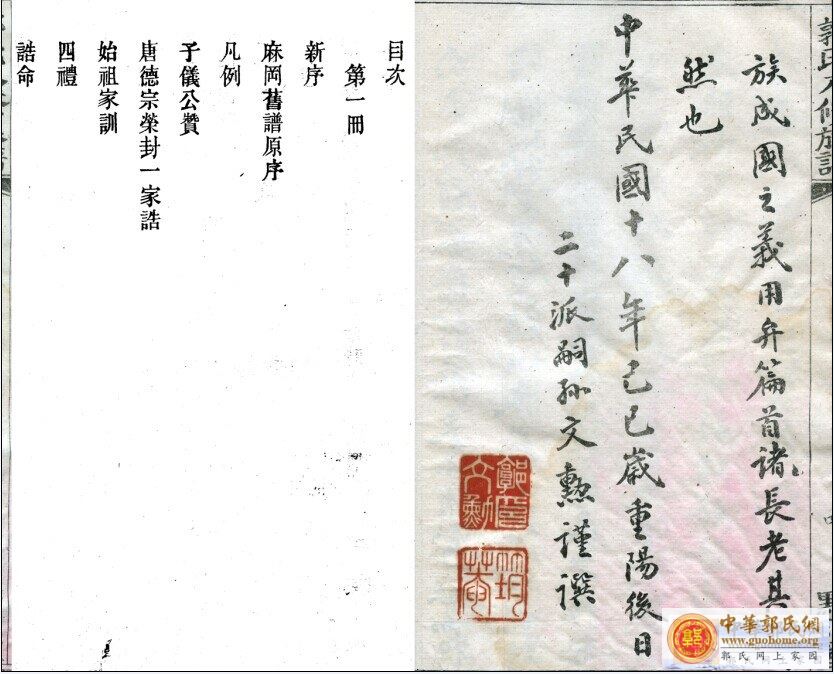 族成國之義用弁篇首諸長老其
然也
中華民國十八年己巳歲重陽後日
二十派嗣孫文勲謹撰
目次
第一冊
新序
麻岡舊譜原序
凡例
子儀公贊
唐德宗榮封一家誥
始祖家訓
四禮
誥命
中華郭氏網
www.guohome.org
郭氏网上家园